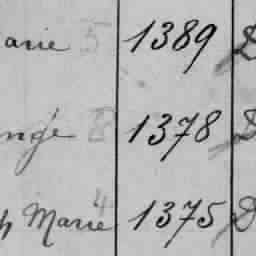 arie 5 1389 D
nge 1378 D
h Marie 4 1375 D